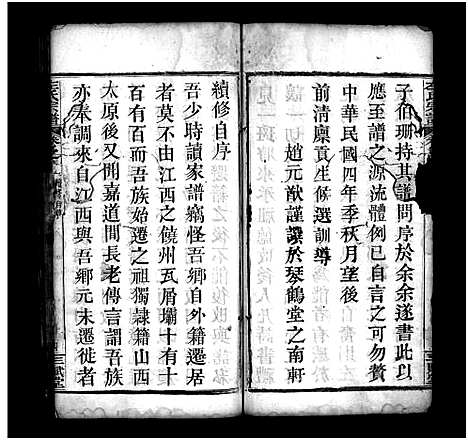 子伯珊持其譜問序於余余遂書此以
應至譜之源流體例已自言之可勿贅
中華民國四年季秋月望後
前清廩貢生候選訓導
趙元猷謹譔於琴鶴堂之南軒
續修自序
吾少時讀家譜竊怪吾鄉自外籍遷居
者莫不由江西之饒州瓦屑壩十有十
百有百而吾族始遷之祖獨隸籍山西
太原後又聞嘉道間長老傳言謂吾族
亦奉調來自江西與吾鄉元末遷徙者